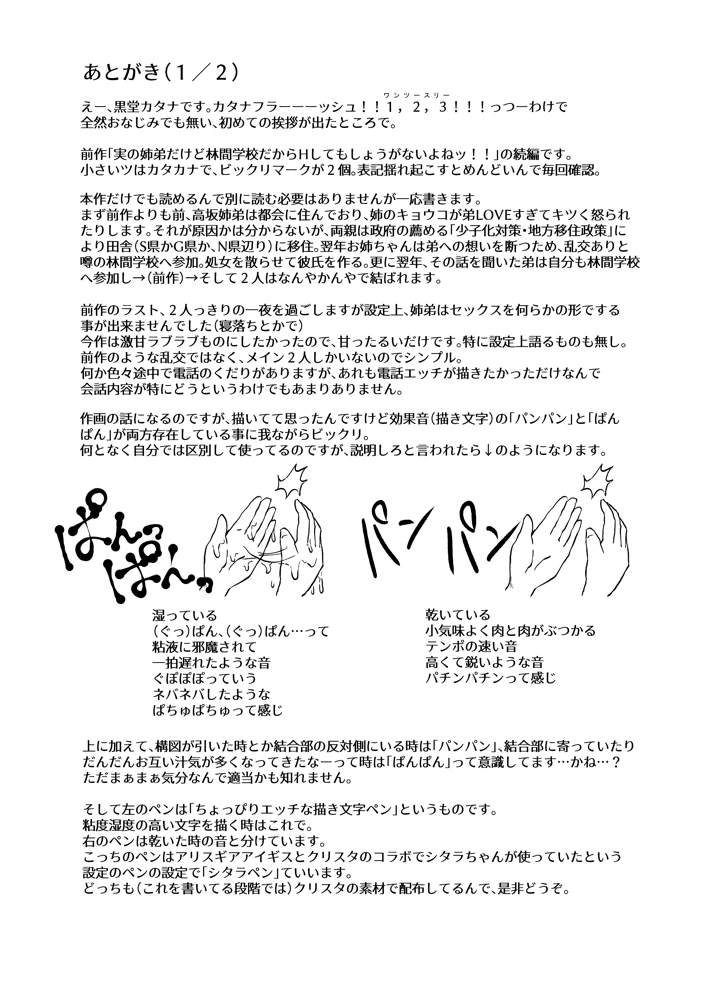 あとがき(1／2)
えー、黒堂カタナです。カタナフラーーーッシュ！！1，2，3！！！っつーわけで
ワンツースリー
全然おなじみでも無い、初めての挨拶が出たところで。
前作「実の姉弟だけど林間学校だからHしてもしょうがないよねッ！！」の続編です。
小さいツはカタカナで、ビックリマークが2個。表記揺れ起こすとめんどいんで毎回確認。
本作だけでも読めるんで別に読む必要はありませんが一応書きます。
まず前作よりも前、高坂姉弟は都会に住んでおり、姉のキョウコが弟LOVEすぎてキツく怒られ
たりします。それが原因かは分からないが、両親は政府の薦める「少子化対策・地方移住政策」に
より田舎(S県かG県か、N県辺り)に移住。翌年お姉ちゃんは弟への想いを断つため、乱交ありと
噂の林間学校へ参加。処女を散らせて彼氏を作る。更に翌年、その話を聞いた弟は自分も林間学校
へ参加し→(前作)→そして2人はなんやかんやで結ばれます。
前作のラスト、2人っきりの一夜を過ごしますが設定上、姉弟はセックスを何らかの形でする
事が出来ませんでした(寝落ちとかで)
今作は激甘ラブラブものにしたかったので、甘ったるいだけです。特に設定上語るものも無し。
前作のような乱交ではなく、メイン2人しかいないのでシンプル。
何か色々途中で電話のくだりがありますが、あれも電話エッチが描きたかっただけなんで
会話内容が特にどうというわけでもあまりありません。
作画の話になるのですが、描いてて思ったんですけど効果音(描き文字)の「パンパン」と「ぱん
ぱん」が両方存在している事に我ながらビックリ。
何となく自分では区別して使ってるのですが、説明しろと言われたら↓のようになります。
ぱんっ
ぱんっ
パン
パン
湿っている
(ぐっ)ぱん、(ぐっ)ぱん…って
粘液に邪魔されて
一拍遅れたような音
ぐぽぽぽっていう
ネバネバしたような
ぱちゅぱちゅって感じ
乾いている
小気味よく肉と肉がぶつかる
テンポの速い音
高くて鋭いような音
パチンパチンって感じ
上に加えて、構図が引いた時とか結合部の反対側にいる時は「パンパン」、結合部に寄っていたり
だんだんお互い汁気が多くなってきたなーって時は「ぱんぱん」って意識してます…かね…？
ただまぁまぁ気分なんで適当かも知れません。
そして左のペンは「ちょっぴりエッチな描き文字ペン」というものです。
粘度湿度の高い文字を描く時はこれで。
右のペンは乾いた時の音と分けています。
こっちのペンはアリスギアアイギスとクリスタのコラボでシタラちゃんが使っていたという
設定のペンの設定で「シタラペン」ていいます。
どっちも(これを書いてる段階では)クリスタの素材で配布してるんで、是非どうぞ。